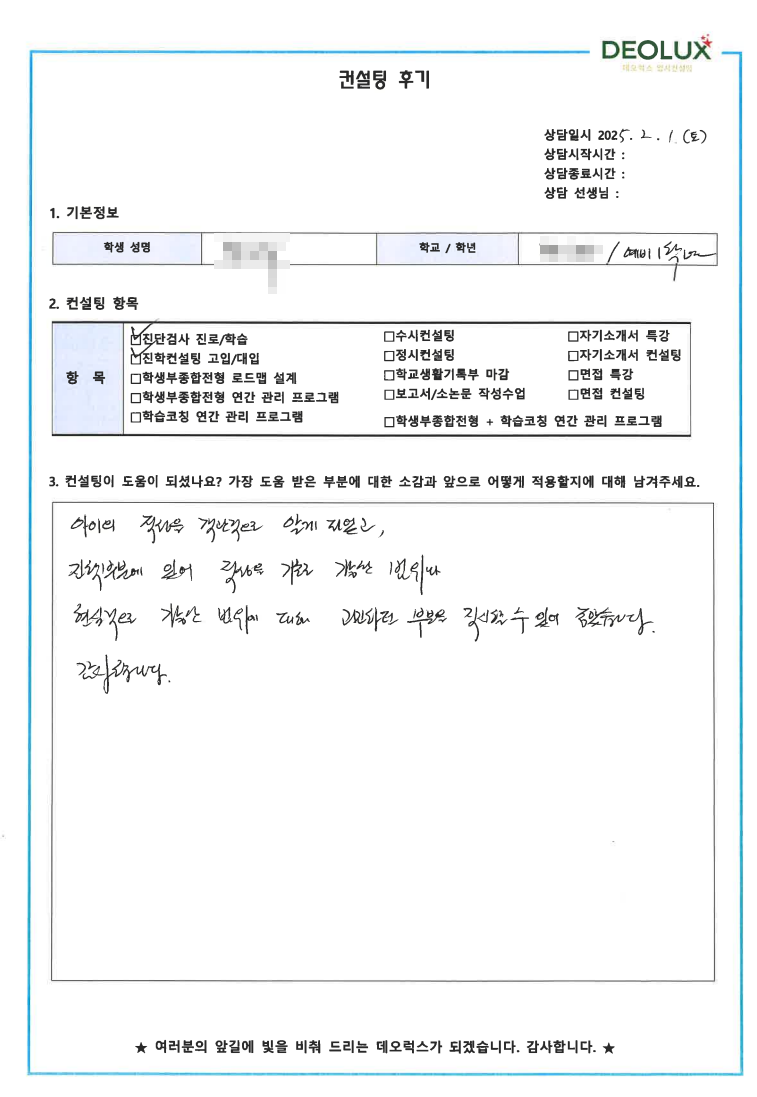 DEOLUX
데오럭스 입시컨설팅
컨설팅 후기
상담일시 2025. 2. 1. (토)
상담시작시간 :
상담종료시간 :
상담 선생님 :
1. 기본정보
학생 성명
학교 / 학년
/ 예비 1학년
2. 컨설팅 항목
항 목
☑진단검사 진로/학습
☑진학컨설팅 고입/대입
□학생부종합전형 로드맵 설계
□학생부종합전형 연간 관리 프로그램
□학습코칭 연간 관리 프로그램
□수시컨설팅
□정시컨설팅
□학교생활기록부 마감
□보고서/소논문 작성수업
□학생부종합전형 + 학습코칭 연간 관리 프로그램
□자기소개서 특강
□자기소개서 컨설팅
□면접 특강
□면접 컨설팅
3. 컨설팅이 도움이 되셨나요? 가장 도움 받은 부분에 대한 소감과 앞으로 어떻게 적용할지에 대해 남겨주세요.
아이의 적성을 객관적으로 알게 되었고,
진학부분에 있어 적성을 기준 가능한 범위나
현실적으로 가능한 범위에 대해 고민하던 부분을 직시할 수 있어 좋았습니다.
감사합니다.
★ 여러분의 앞길에 빛을 비춰 드리는 데오럭스가 되겠습니다. 감사합니다. ★